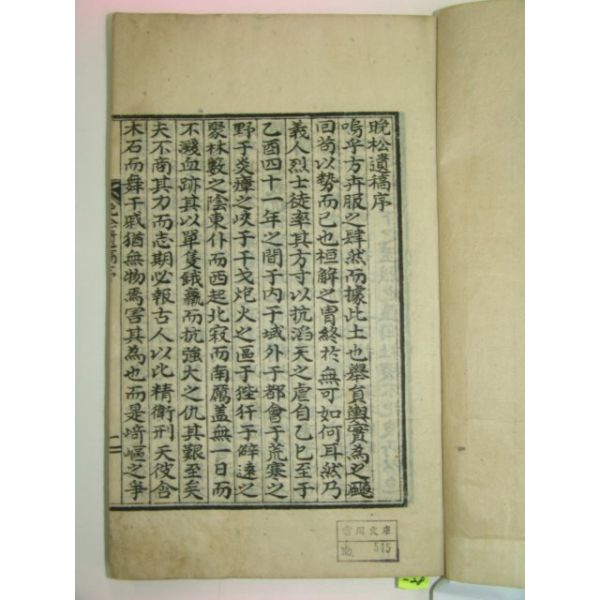 晩松遺稿序
嗚乎方卉服之肆然而據此土也擧員輿實為之
曰苟以勢而已也桓解之胄終於無可如何耳然乃
義人烈士徒率其方寸以抗滔天之虐自乙巳至于
乙酉四十一年之間于內于域外于都會于荒寒之
野于炎瘴之峧于干戈炮火之區于狴犴于僻遠之
聚林藪之陰東仆而西起北寂而南厲盖無一日而
不濺血跡其以單隻餓羸而抗強大之仇其艱至矣
夫不商其力而志期必報古人以比精衛刑天彼含
木石而舞干戚猶無物焉害其為也而是崎嶇之爭
晩松遺稿序
一
雪川文庫
No. 515